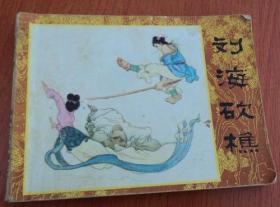 刘海砍樵